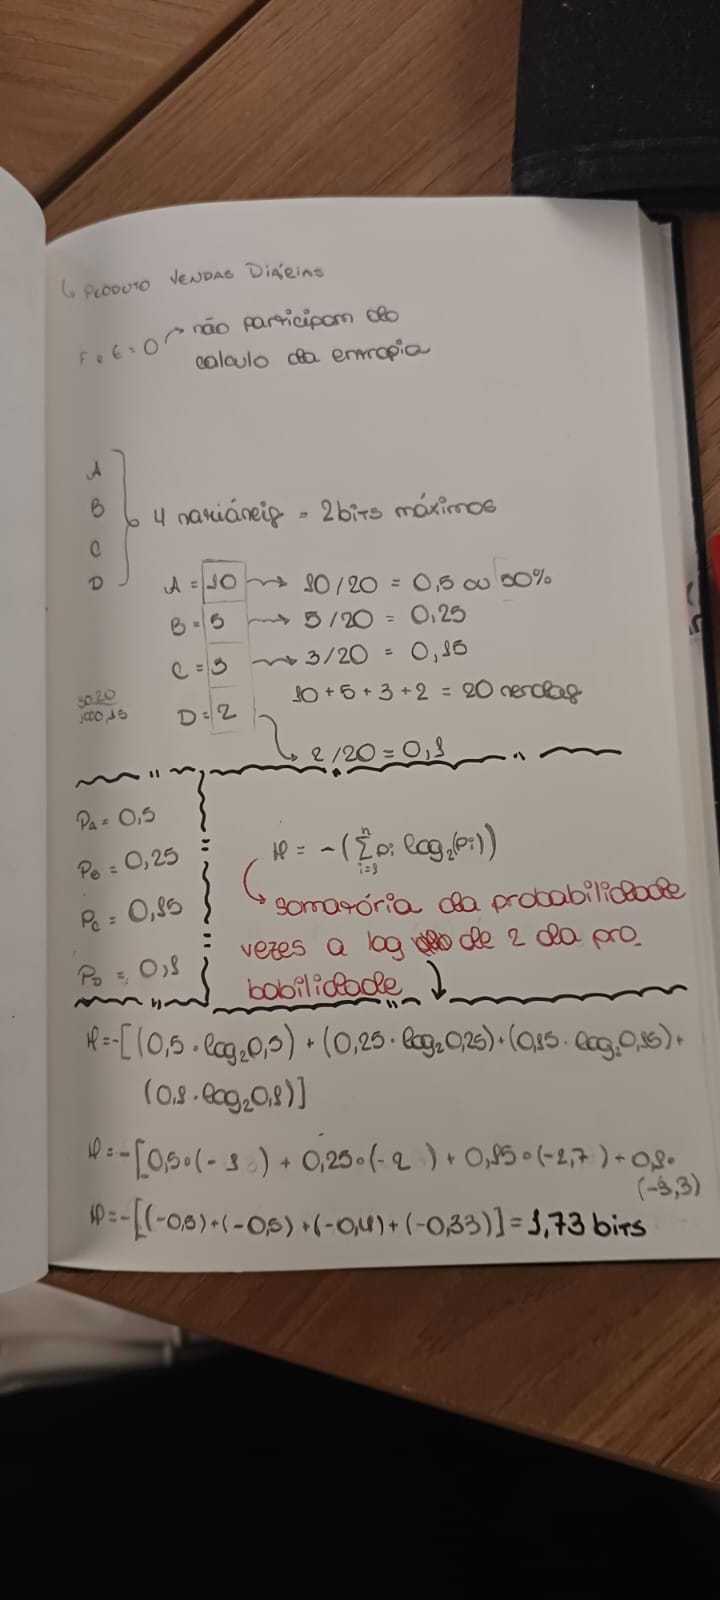 ↳ PRODUTO VENDAS DIÁRIAS
F e E = 0 → não participam do
calculo da entropia
A
B
C
D
4 variáveis = 2 bits máximos
A = 10 → 10/20 = 0,5 ou 50%
B = 5 → 5/20 = 0,25
C = 3 → 3/20 = 0,15
10 + 5 + 3 + 2 = 20 vendas
D = 2
2/20 = 0,1
PA = 0,5
PB = 0,25
PC = 0,15
PD = 0,1
H = -(∑ⁿᵢ₌₁ pi log₂(pi))
somatória da probabilidade
vezes a log de 2 da pro
babilidade
H = -[(0,5 · log₂0,5) + (0,25 · log₂0,25) + (0,15 · log₂0,15) +
(0,1 · log₂0,1)]
H = -[0,5 · (-1) + 0,25 · (-2) + 0,15 · (-2,7) + 0,1 ·
(-3,3)
H = -[(-0,5) + (-0,5) + (-0,4) + (-0,33)] = 1,73 bits